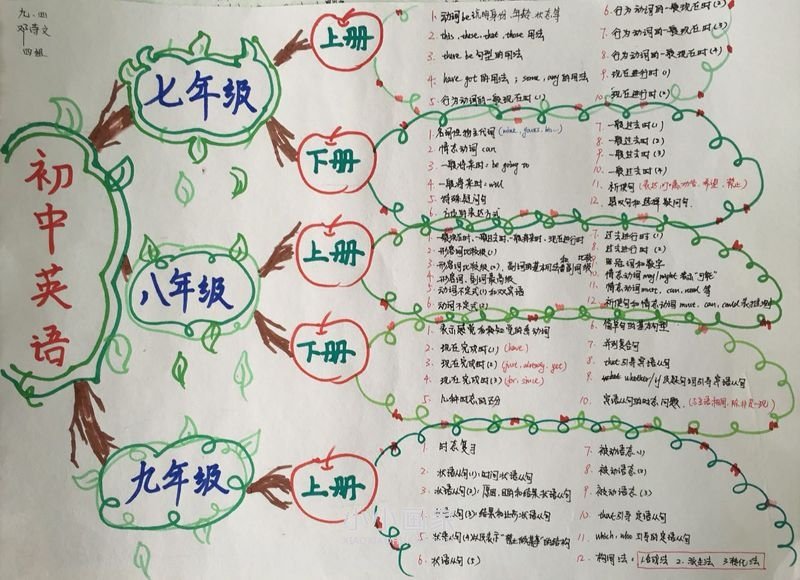 九.四
邓诗文
四组
初中英语
七年级
上册
1. 动词be说明身份、年龄、状态等
2. this, these, that, those 用法
3. there be 句型的用法
4. have got 的用法；some, any的用法
5. 行为动词的一般现在时(1)
6. 行为动词的一般现在时(2)
7. 行为动词的一般现在时(3)
8. 行为动词的一般现在时(4)
9. 现在进行时(1)
10. 现在进行时(2)
下册
1. 名词性物主代词(mine, yours, his...)
2. 情态动词 can
3. 一般将来时: be going to
4. 一般将来时: will
5. 特殊疑问句
6. 方位的表达方式
7. 一般过去时(1)
8. 一般过去时(2)
9. 一般过去时(3)
10. 一般过去时(4)
11. 祈使句
12. 感叹句和选择疑问句
八年级
上册
1. 一般现在时、一般过去时、一般将来时、现在进行时
2. 形容词比较级(1)
3. 形容词比较级(2)、副词的
4. 形容词、副词最高级
5. 动词不定式(1)和双宾语
6. 动词不定式(2)
7. 过去进行时(1)
8. 过去进行时(2)
9. 词和数字
10. 情态动词 may/might 表示"可能"
11. 情态动词must, can, need 等
12. 祈使句和情态动词 must, can, could
下册
1. 表示感觉和知觉的系动词
2. 现在完成时(1) (have)
3. 现在完成时(2) (just, already, yet)
4. 现在完成时(3) (for, since)
5. 几种时态的区分
6. 简单句的基本句型
7. 并列复合句
8. that 引导宾语从句
9. whether/if 及疑问词引导宾语从句
10. 宾语从句的时态问题
九年级
上册
1. 时态复习
2. 状语从句(1): 时间状语从句
3. 状语从句(2): 原因、目的和结果状语从句
4. 状语从句(3): 结果和让步状语从句
5. 状语从句(4)
6. 状语从句(5)
7. 被动语态(1)
8. 被动语态(2)
9. 被动语态(3)
10. that 引导定语从句
11. which, who 引导的定语从句
12. 构词法: 1.合成法 2.派生法 3.转化法